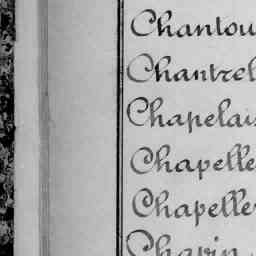 Chantou
Chantrel
Chapelais
Chapelle
Chapelle
Chapin